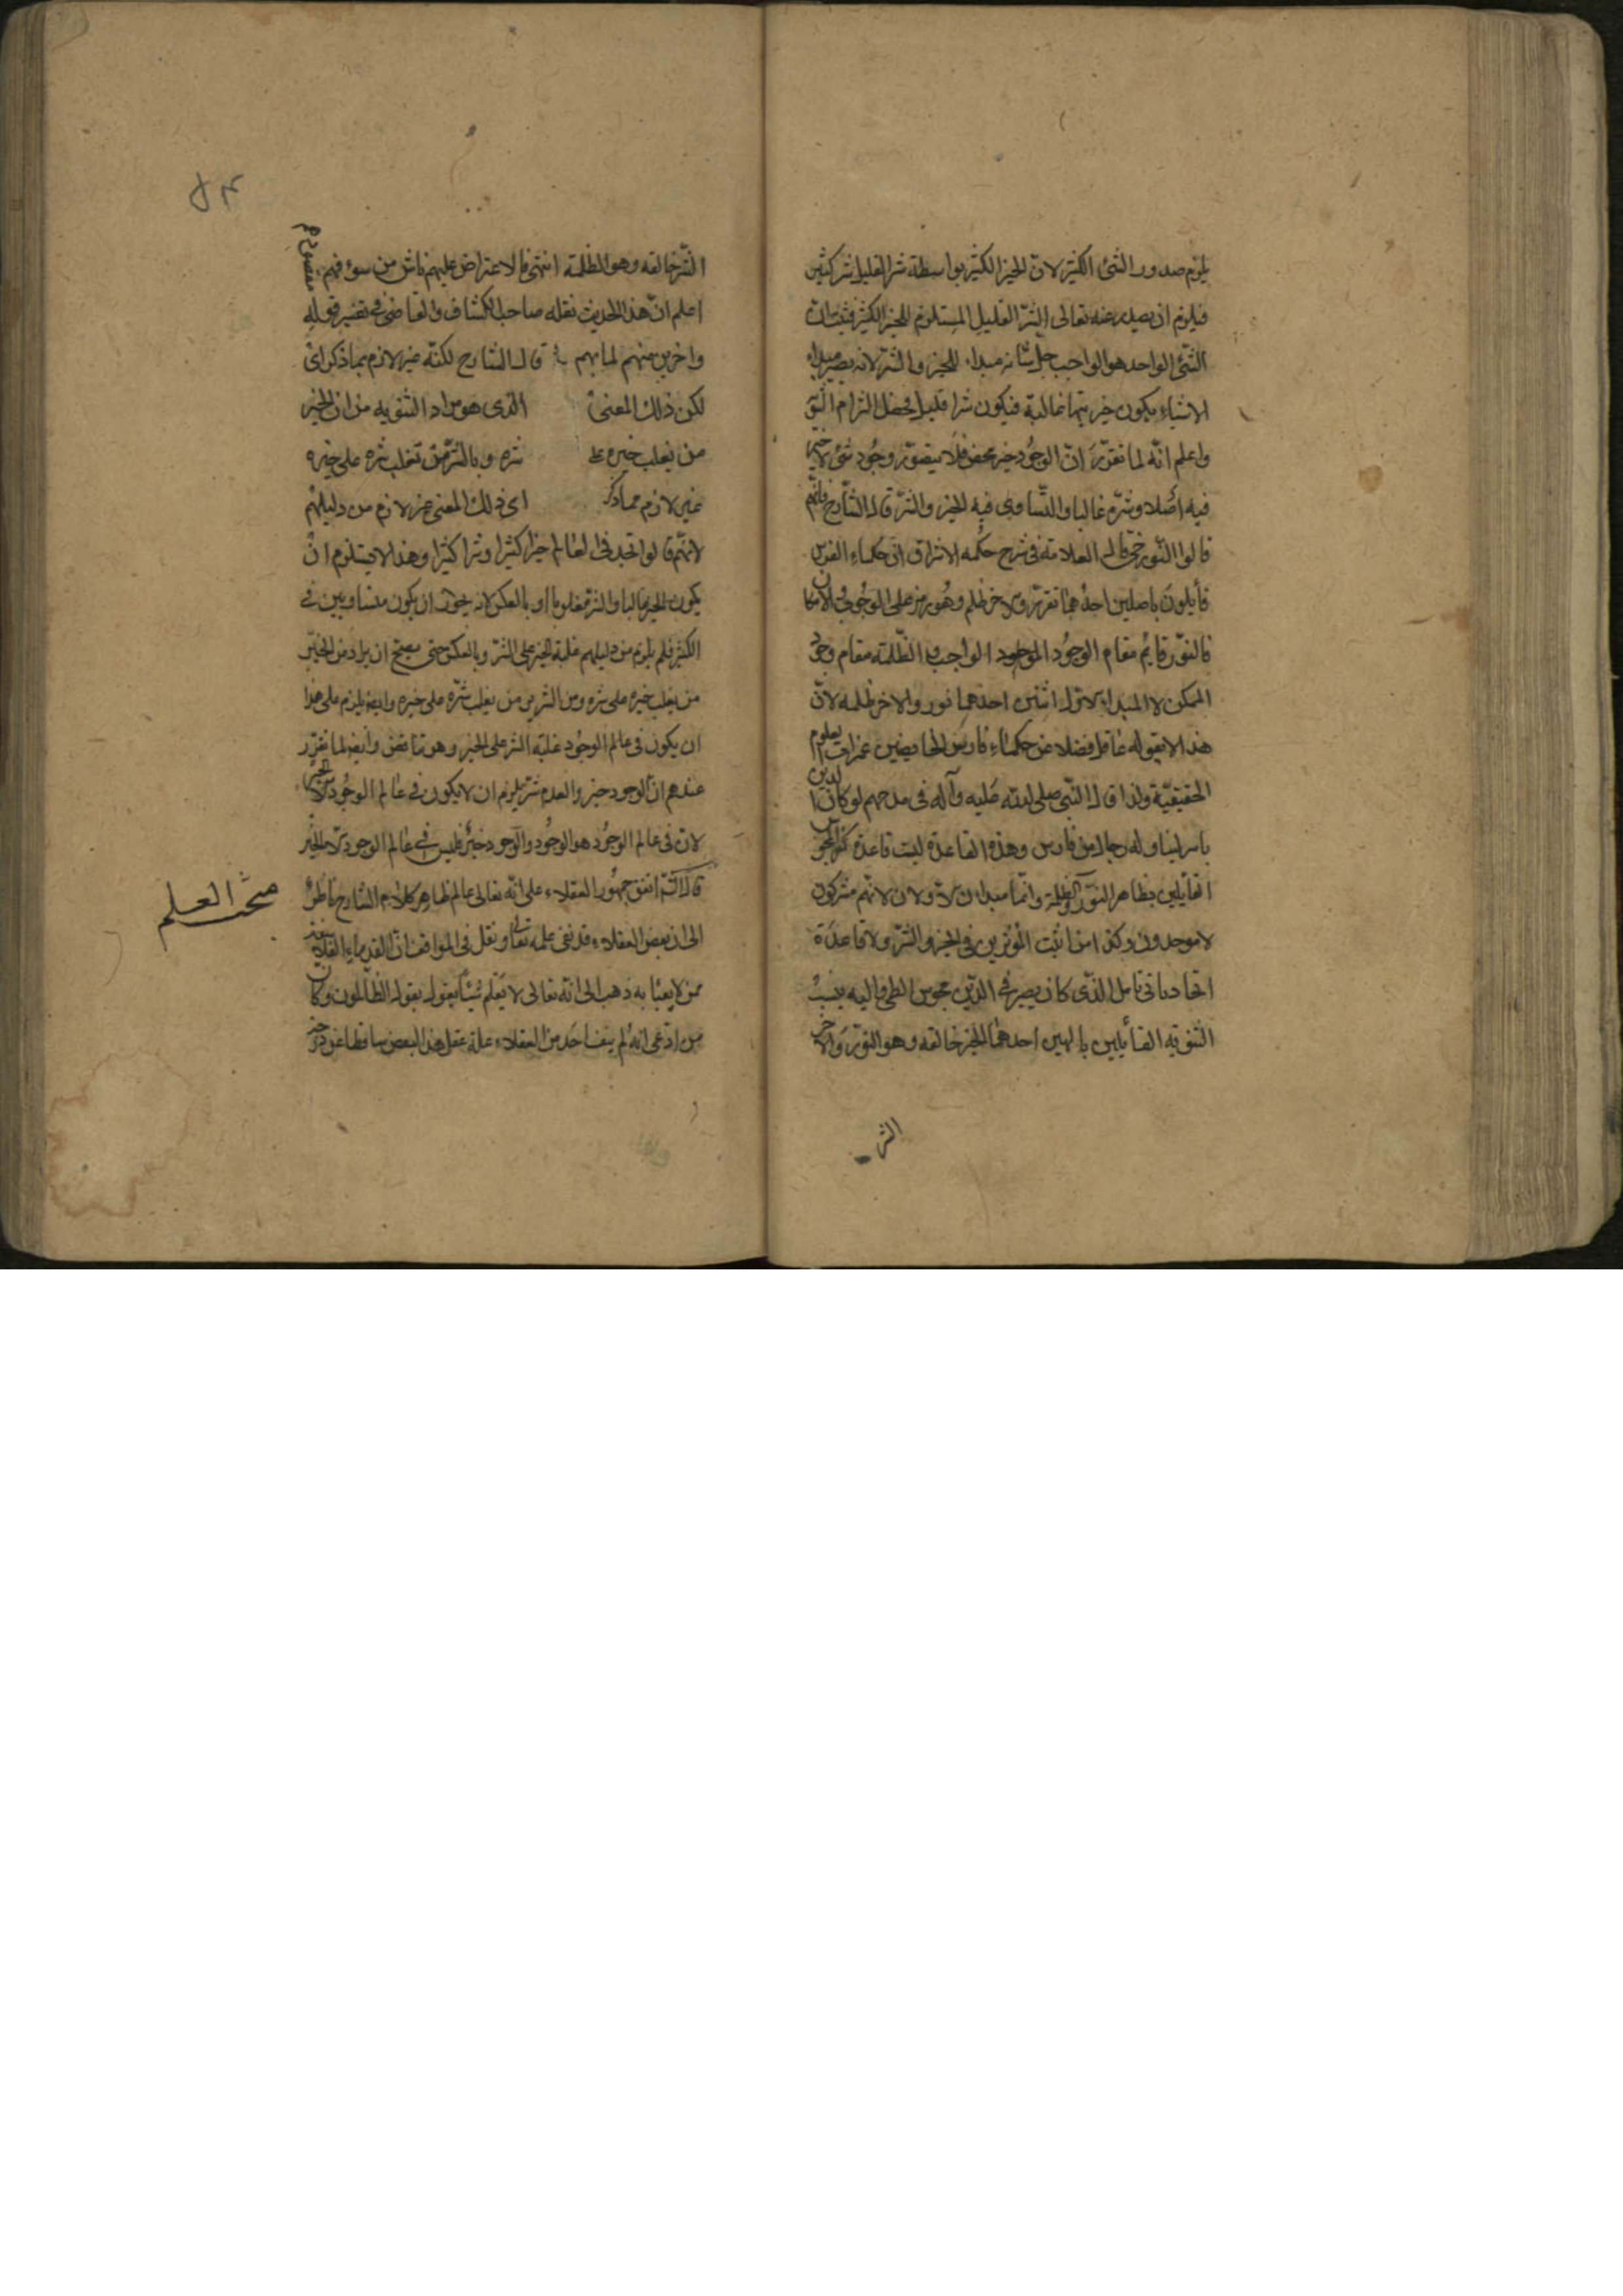 يلزم صدور الشئ الكثير لان الخير الكثير بواسطة شر القليل شر كثير
فيلزم ان يصدر عنه تعالى الشر القليل المستلزم للخير الكثير فثبت ان
الشئ الواحد هو الواجب جل شانه مبداء للخير والشر لانه يصير مبداء
الاشياء يكون خيريتها غالبة فيكون شرا قليلا فحصل التزام الشق
واعلم انه لما تقرر ان الوجود خير محض فلا يتصور وجود شئ لا خير
فيه اصلا وشره غالبا والتساوى فيه الخير والشر قال الشارح فانهم
قالوا النور حى قال العلامة فى شرح حكمه الاشراق ان حكماء الفرس
قايلون باصلين احدهما نور والاخر ظلم وهو رمز على الوجوب والامكان
فالنور قايم مقام الوجود الموجود الواجب والظلمة مقام وجود
الممكن لا المبداء الاول اثنين احدهما نور والاخر ظلمه لان
هذا لا يقوله عاقل فضلا عن حكماء فارس الخايضين غمرات العلوم
الحقيقية ولذا قال النبى صلى الله عليه وآله فى مدحهم لو كان الدين
بالثريا لناوله رجال من فارس وهذه القاعدة ليست قاعدة كفر المجوس
القايلين بظاهر النور والظلمة وانهما مبداءان لاولان لانهم مشركون
لا موحدون وكذا من اثبت المؤثرين فى الخير والشر ولا قاعدة
الحاد مانى بابل الذى كان بصير فى الدين مجوس الطين واليه ينسب
الثنوية القايلين بالهين احدهما للخير خالقه وهو النور والاخر
الشر
۵۴
الشر خالقه وهو الظلمة انتهى فالاعتراض عليهم ناش من سوء فهم
اعلم ان هذا الحديث نقله صاحب الكشاف والقاضى فى تفسير قوله
واخرين منهم لما بهم قال الشارح لكنه غير لازم بما ذكر اى
لكن ذلك المعنى الذى هو مراد الثنويه من ان الخير
من يغلب خيره على شره وبالشر من تغلب شره على خيره
غير لازم مما ذكر اى ذلك المعنى غير لازم من دليلهم
لانهم قالوا نجد فى العالم خيرا كثيرا وشرا كثيرا وهذا لا يستلزم ان
يكون الخير غالبا والشر مغلوبا او بالعكس لانه يجوز ان يكون متساويين فى
الكثير فلم يلزم من دليلهم غلبة الخير على الشر وبالعكس حتى يصح ان يراد من الخير
من يغلب خيره على شره ومن الشرير من يغلب شره على خيره وايضا يلزم على هذا
ان يكون فى عالم الوجود غلبة الشر على الخير وهو تناقض وايضا لما تقرر
عندهم ان الوجود خير والعدم شر يلزم ان لا يكون فى عالم الوجود الا الخير
لان فى عالم الوجود هو الوجود والوجود خير فليس فى عالم الوجود الا الخير
قال اتفق جمهور العقلاء على انه تعالى عالم ظاهر كلام الشارح ناظر
مبحث العلم
الى ان بعض العقلاء قد نفى علمه تعالى ونقل فى المواقف ان القدماء الفلاسفة
ممن لا يعبا به ذهب الى انه تعالى لا يعلم شيئا يقول بقوله الظالمون وكان
من ادعى انه لم ينف احد من العقلاء علمه عقل هذا البعض ساقطا عن درجة